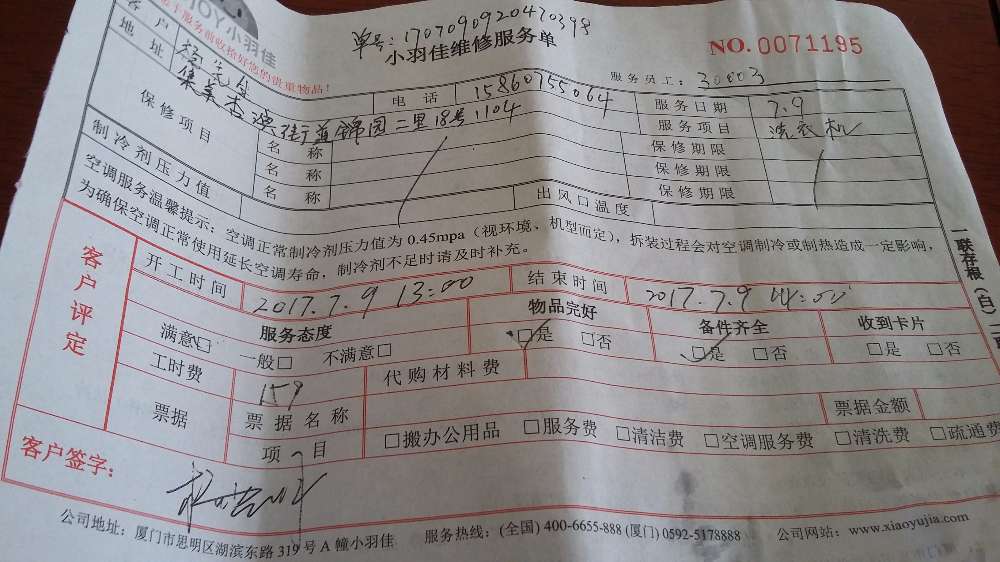 JOY 小羽佳
单号:1707090920470398
小羽佳维修服务单
NO.0071195
服务前收拾好您的贵重物品!
服务员工: 30003
客户 杨先生 电话 15860755064 服务日期 7.9
地址 集美杏滨街道锦园二里18号1104 服务项目 洗衣机
保修项目 名称 保修期限
名称 保修期限
名称 保修期限
制冷剂压力值 出风口温度
空调服务温馨提示: 空调正常制冷剂压力值为0.45mpa(视环境、机型而定),拆装过程会对空调制冷或制热造成一定影响,
为确保空调正常使用延长空调寿命,制冷剂不足时请及时补充。
一联存根(白)
客户评定
开工时间 2017.7.9 13:00 结束时间 2017.7.9
服务态度 物品完好 备件齐全 收到卡片
满意□ 一般□ 不满意□ □是 □否 □是 □否 □是 □否
工时费 159 代购材料费
票据 票据名称 票据金额
项目 □搬办公用品 □服务费 □清洁费 □空调服务费 □清洗费 □疏通费
客户签字:
公司地址: 厦门市思明区湖滨东路319号A幢小羽佳 服务热线: (全国) 400-6655-888 (厦门) 0592-5178888 公司网站: www.xiaoyujia.com